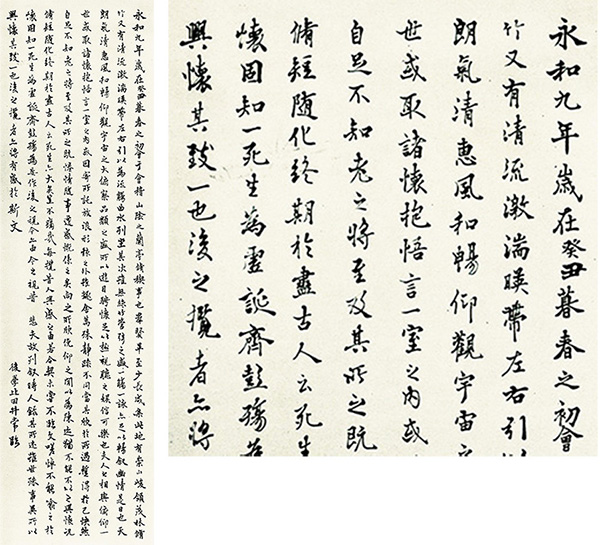 永和九年歲在癸丑暮春之初會于會稽山陰之蘭亭脩禊事也羣賢畢至少長咸集此地有崇山峻領茂林脩
竹又有清流激湍暎帶左右引以為流觴曲水列坐其次雖無絲竹管弦之盛一觴一詠亦足以暢叙幽情是日也天
朗氣清惠風和暢仰觀宇宙之大俯察品類之盛所以遊目騁懷足以極視聽之娛信可樂也夫人之相與俯仰一
世或取諸懷抱悟言一室之內或因寄所託放浪形骸之外雖趣舍萬殊靜躁不同當其欣於所遇蹔得於己快然
自足不知老之將至及其所之既惓情隨事遷感慨係之矣向之所欣俛仰之閒以為陳迹猶不能不以之興懷況
脩短隨化終期於盡古人云死生亦大矣豈不痛哉每攬昔人興感之由若合一契未嘗不臨文嗟悼不能喻之於
懷固知一死生為虛誕齊彭殤為妄作後之視今亦由今之視昔悲夫故列叙時人錄其所述雖世殊事異所以
興懷其致一也後之攬者亦將有感於斯文
後學比田井常
永和九年歲在癸丑暮春之初會
竹又有清流激湍暎帶左右引以
朗氣清惠風和暢仰觀宇宙之
世或取諸懷抱悟言一室之內或
自足不知老之將至及其所之既
脩短隨化終期於盡古人云死生
懷固知一死生為虛誕齊彭殤為
興懷其致一也後之攬者亦將